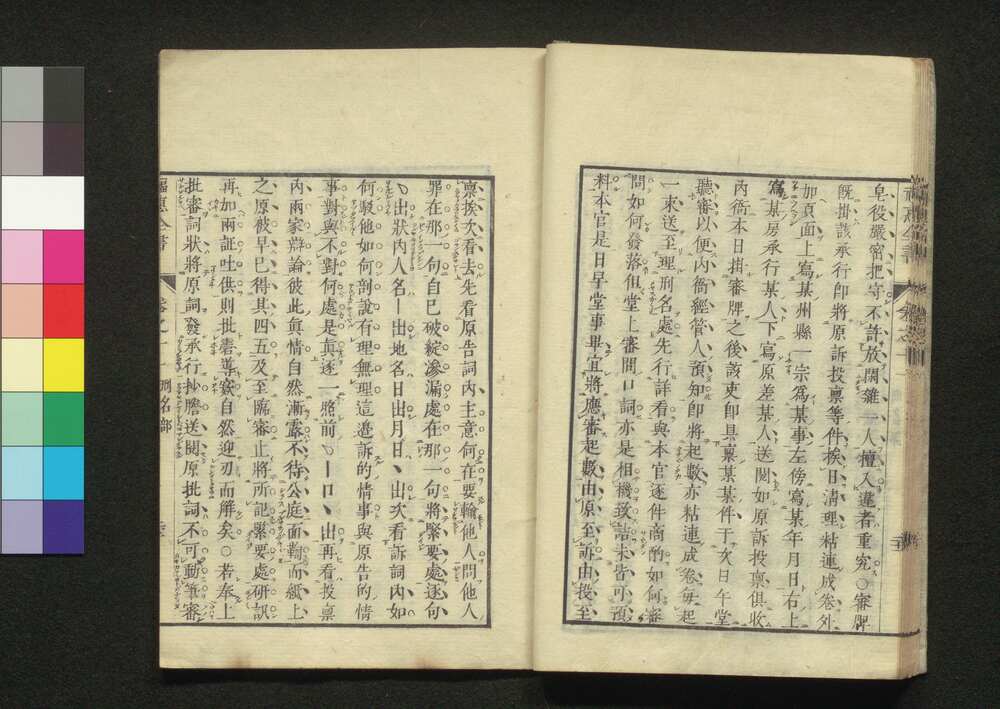 皂役嚴密把守不許放閒雜一人擅入違者重究○審牌
既掛該承行即將原訴投禀等件挨日清理粘連成卷外
加頁面上寫某州縣一宗爲某事左傍寫某年月日右上
寫某房承行某人下寫原差某人送閱如原訴投禀俱收
內衙本日掛審牌之後該吏即具禀某某件于次日午堂
聽審以便內衙經管人預知即將起數亦粘連成卷每起
一束送至理刑名處先行詳看與本官逐件商酌如何審
問如何發落但堂上審問口詞亦是相機致詰未皆可預
料本官是日早堂事畢宜將應審起數由原至訴由投至
禀挨次看去先看原告詞內主意何在要輸他人問他人
罪在那一句自已破綻滲漏處在那一句將緊要處逐句
出狀內人名一出地名日出月日、出次看訴詞內如
何駁他如何剖說有理無理這造訴的情事與原告的情
事對與不對何處是眞逐一將前一口、出再看投禀
內兩家辯論彼此眞情自然漸露不待公庭面鞫而紙上
之原被早已得其四五及至臨審止將所記緊要處研訊
再加兩証吐供則批砉導窾自然迎刃而解矣○若奉上
批審詞狀將原詞發承行抄謄送閱原批詞不可動筆審
福惠全書
卷之十一 刑名部